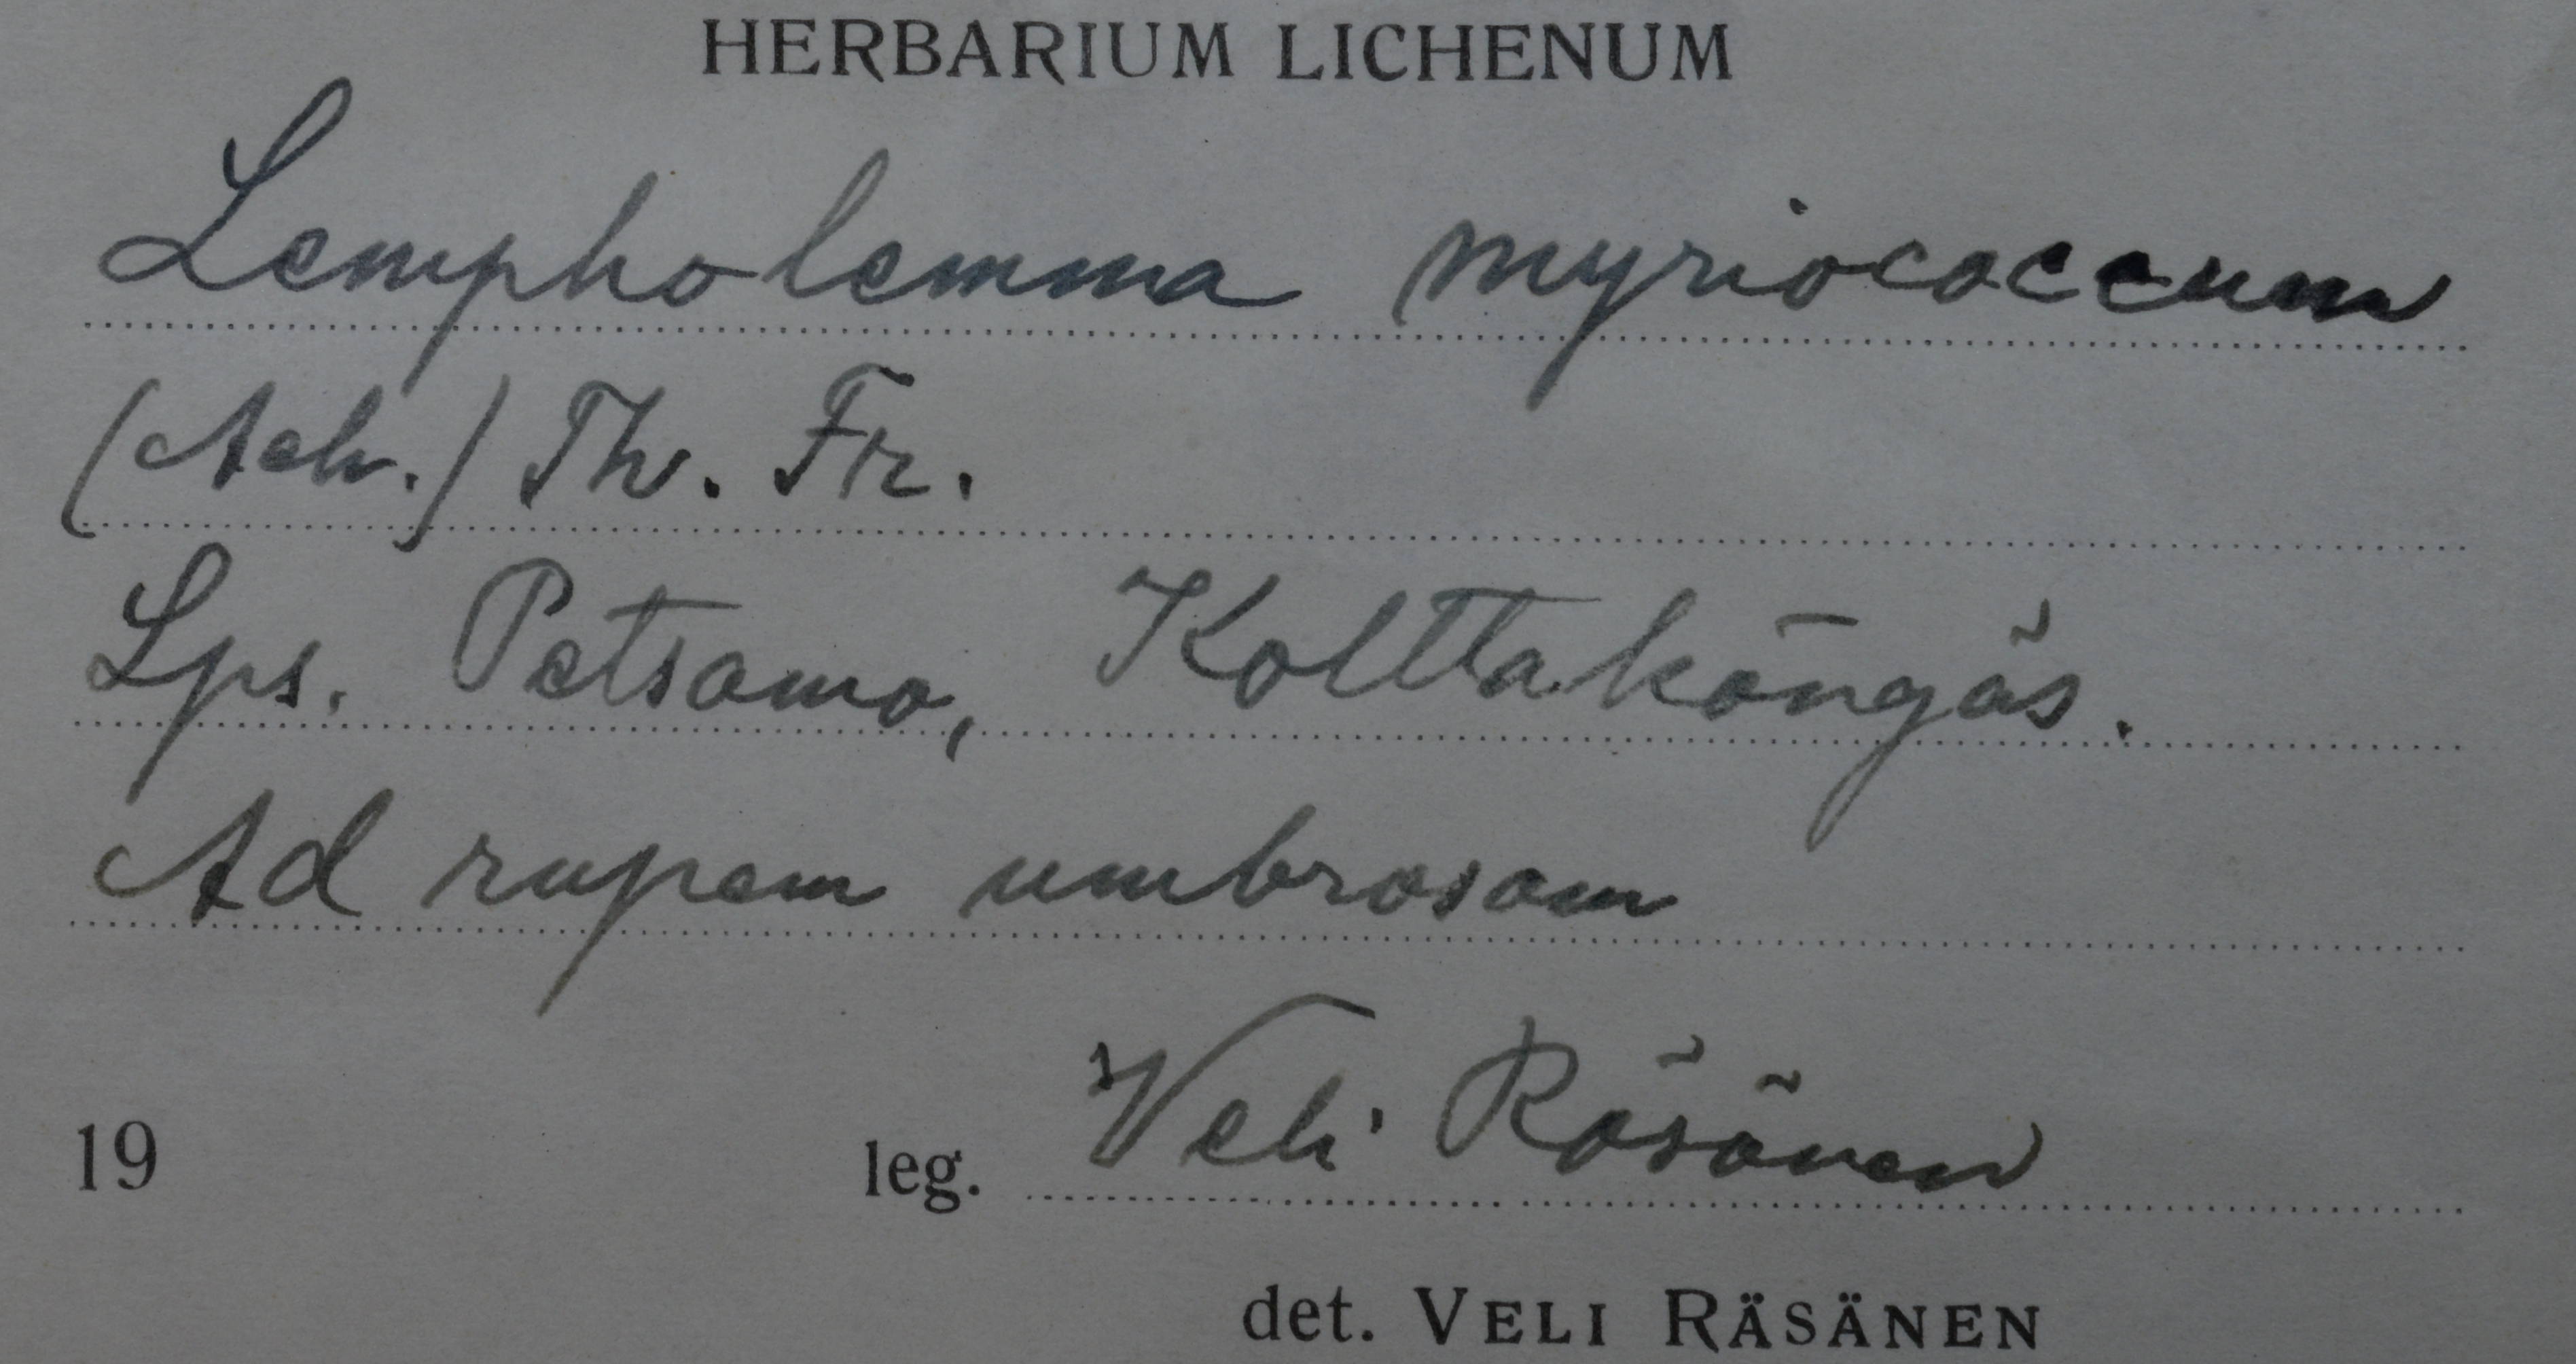 HERBARIUM LICHENUM
Lempholemma myriococcum
(Ach.) Th. Fr.
Lps. Petsamo, Kolttaköngäs.
Ad rupem umbrosam
19 leg. Veli Räsänen
det. VELI RÄSÄNEN